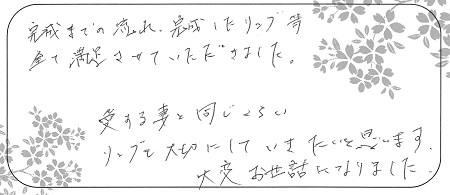 完成までの流れ、完成したリング等
全て満足させていただきました。
愛する妻と同じくらい
リングも大切にしていきたいと思います。
大変お世話になりました。